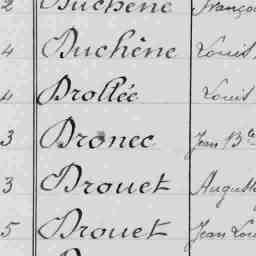 2 Duchêne Franço
4 Duchêne Louis
4 Drollée Louis
3 Dronec Jean Bte
3 Drouet Auguste
5 Drouet Jean Lou